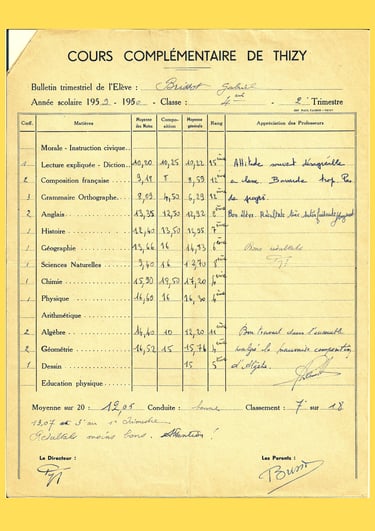 COURS COMPLÉMENTAIRE DE THIZY
Bulletin trimestriel de l'Elève : Brissot Gabriel
Année scolaire 195 -1950 - Classe : 4ème - 2e Trimestre
Coef. Matières Moyenne des Notes Composition Moyenne générale Rang Appréciation des Professeurs
Morale - Instruction civique
1 Lecture expliquée - Diction 10,20 10,25 10,22 15ème Attitude souvent
2 Composition française 9,18 8 8,59 ème Bavarde trop Pas
3 Grammaire Orthographe 8,09 4,50 6,29 ème de progrès.
2 Anglais 13,35 12,50 12,92 ème Bon élève. Résultats très satisfaisants
1 Histoire 12,40 13,50 12,95 7ème
1 Géographie 13,66 16 14,83 6ème Bons résultats
1 Sciences Naturelles 9,40 16 12,70 5ème
1 Chimie 15,90 18,50 17,20 6ème
1 Physique 16,60 16 16,30 4ème
Arithmétique
2 Algèbre 14,40 10 12,20 11ème Bon travail dans l'ensemble
2 Géométrie 16,52 15 15,76 4ème malgré la mauvaise composition
1 Dessin 15 5ème d'Algèbre.
Education physique
Moyenne sur 20 : 12,05 Conduite : bonne Classement : 7e sur 18
13,07 et 3e au 1er Trimestre
Résultats moins bons. Attention !
Le Directeur : Les Parents :